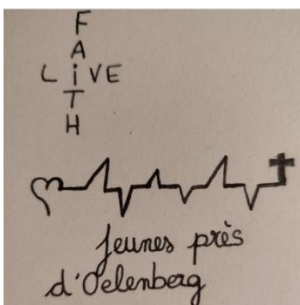 F
A
LiVE
T
H
Jeunes près
d'Oelenberg